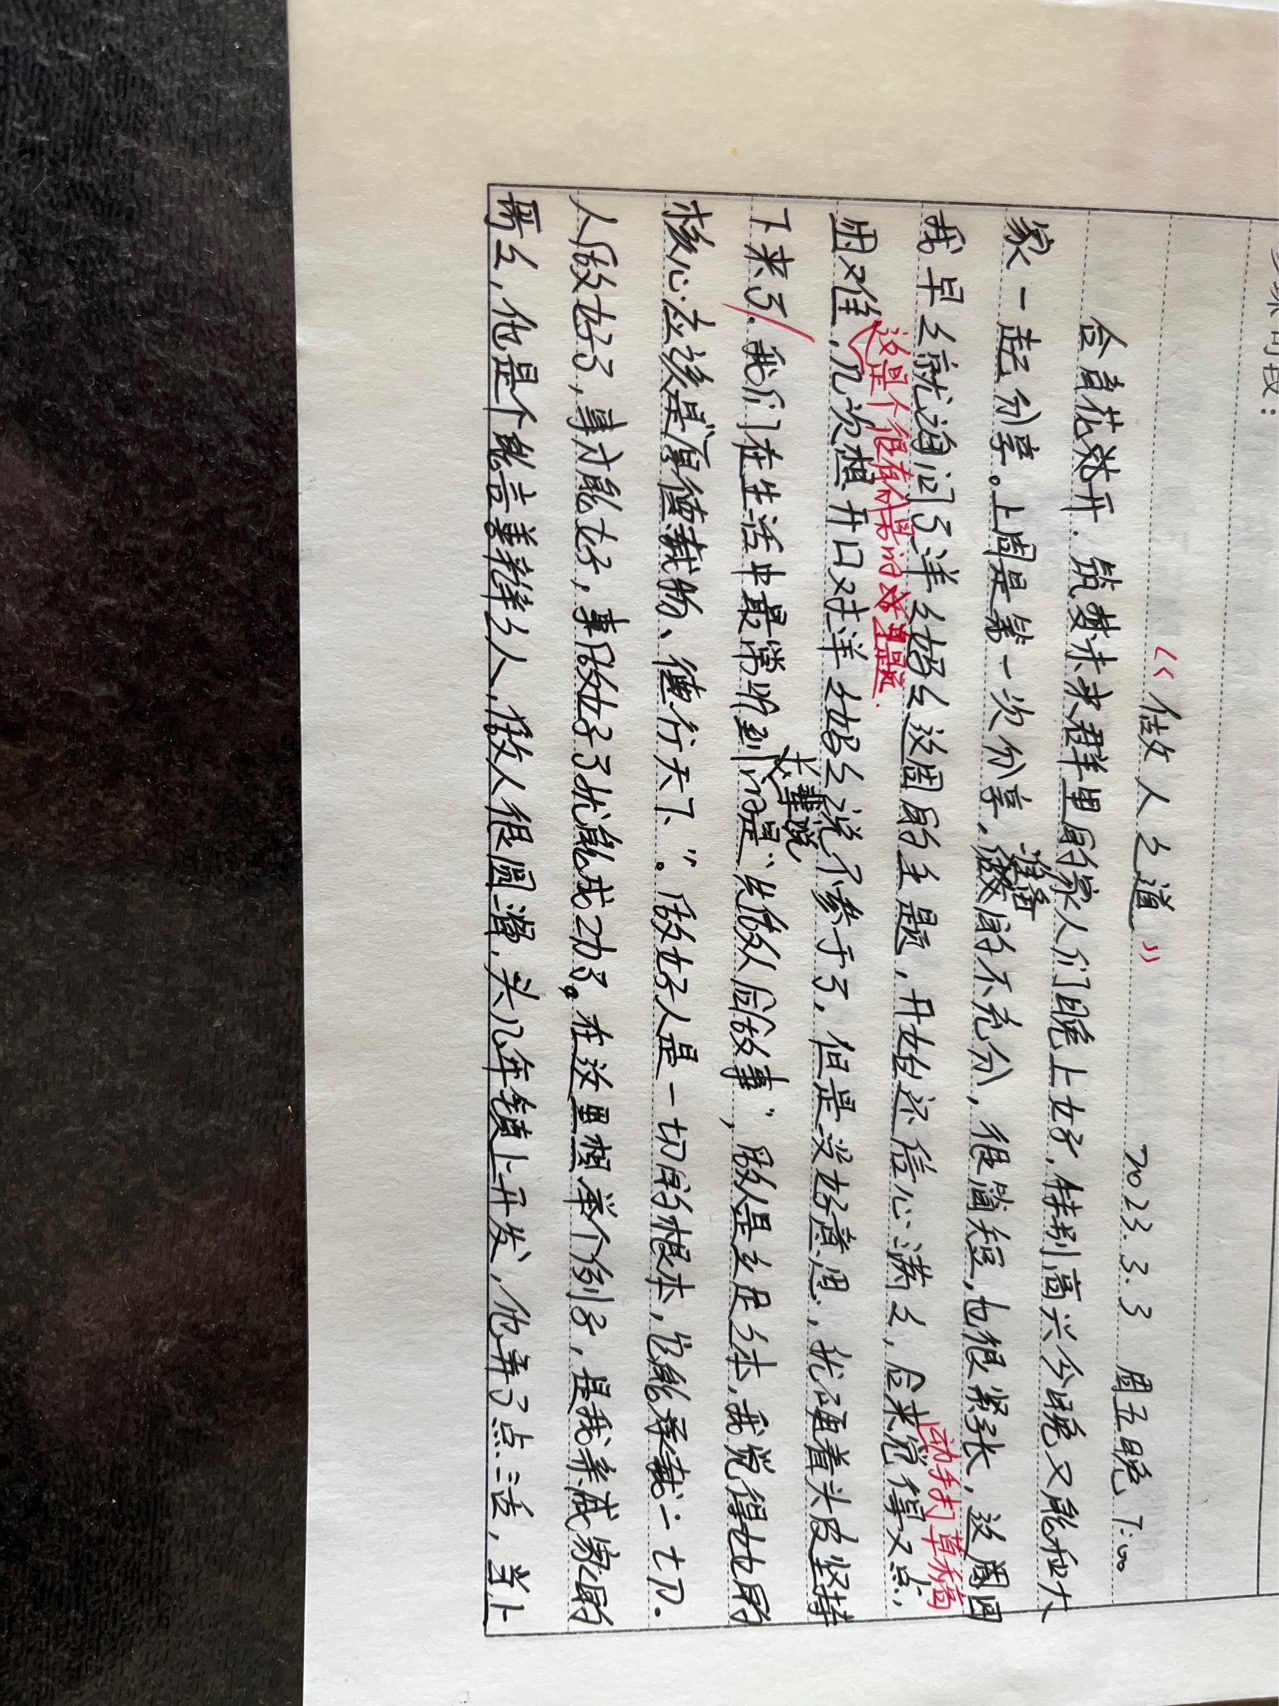 《做人之道》
2023.3.3 周五晚 7:00
合宜花效开.筑梦未来群里的家人们晚上好,特别高兴今晚又能和大
家一起分享。上周是第一次分享,做的不充分,很简短,也很紧张,这周
准备
我早么就询问了洋么妈么这周的主题,开始还信心满么,后来觉得又点,
动手打草稿
困难,几次想开口对洋么妈么说不参于了,但是没好意思,就硬着头皮坚持
这是个很有价值的话题.
下来了.我们在生活中最常听到的是“先做人后做事”,做人是立足之本,我觉得它的
长辈说
核心应该是“厚德载物、德行天下”。做好人是一切的根本,它能承载一切.
人做好了,事才能好,事做好了就能成功了。在这里想举个例子,是我亲戚家的
哥么,他是个能言善辩之人,做人很圆滑,头几年镇上开发,他弄了点活,当上